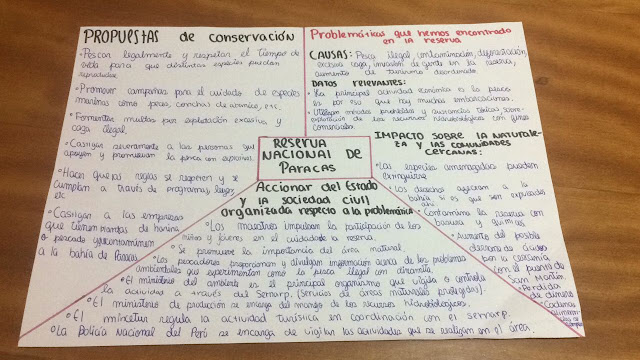 PROPUESTAS de conservación
• Pescar legalmente y respetar el tiempo de
veda para que distintas especies puedan
reproducirse.
• Promover campañas para el cuidado de especies
marinas como peces, conchas de abanico, etc.
• Fomentar multas por explotación excesiva y
caza ilegal.
• Castigar severamente a las personas que
apoyen y promuevan la pesca con explosivos.
• Hacer que las reglas se respeten y se
cumplan a través de programas, leyes,
etc
• Castigar a las empresas
que tienen plantas de harina
o pescado y contaminen
a la bahía de Paracas.
Problemáticas que hemos encontrado
en la reserva
CAUSAS: Pesca ilegal, contaminación, deforestación,
excesiva caza, invasión de gente en la reserva,
aumento de turismo desordenado.
DATOS RELEVANTES:
• La principal actividad económica es la pesca
es por eso que hay muchas embarcaciones.
• Utilizan métodos prohibidos y sustancias tóxicas sobre-
explotación de los recursos hidrobiológicos con fines
comerciales.
IMPACTO SOBRE LA NATURALE-
ZA Y LAS COMUNIDADES
CERCANAS:
• Las especies amenazadas pueden
extinguirse
• Los desechos afectan a la
bahía si es que son expulsados
ahí.
• Contamina la reserva con
basura y químicos.
• Aumento del posible
derrame de ácidos
por la cercanía
con el puerto de
San Martín
• Pérdida
de dinero
RESERVA
NACIONAL DE
PARACAS
Accionar del Estado
y la sociedad civil
organizada respecto a la problemática
• Los maestros impulsan la participación de los
niños y jóvenes en el cuidado de la reserva.
• Se promueve la importancia del área natural.
• Los pescadores proporcionan y divulgan información acerca de los problemas
ambientales que experimentan como la pesca ilegal con dinamita.
• El ministerio del ambiente es el principal organismo que vigila o controla
la actividades a través del Sernarp. (Servicios de áreas naturales protegidas).
• El ministerio de producción se encarga del manejo los recursos hidrobiológicos.
• El mincetur regula la actividad turística en coordinación con el sernarp.
• La Policía Nacional del Perú se encarga de vigilar las actividades que se realizan en el área.